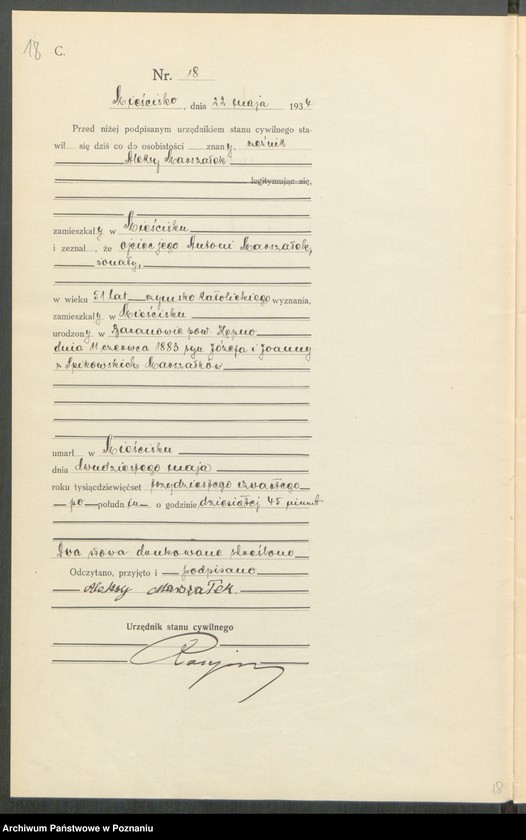 18 C.
Nr. 18
Mieścisko, dnia 22 maja 1934
Przed niżej podpisanym urzędnikiem stanu cywilnego sta-
wił się dziś co do osobistości znany, rzeźnik
Aleksy Marszałek
legitymując się,
zamieszkały w Mieścisku
i zeznał, że ojciec jego Antoni Marszałek,
żonaty,
w wieku 51 lat rzymsko katolickiego wyznania,
zamieszkały w Mieścisku
urodzony w Baranowie pow. Kępno
dnia 11 czerwca 1883 syn Józefa i Joanny
z Marszałków
umarł w Mieścisku
dnia dwudziestego maja
roku tysiącdziewięćset trzydziestego czwartego
po południu o godzinie dziesiątej 45 minut
Dwa słowa drukowane skreślono
Odczytano, przyjęto i podpisano
Aleksy Marszałek.
Urzędnik stanu cywilnego
18
Archiwum Państwowe w Poznaniu